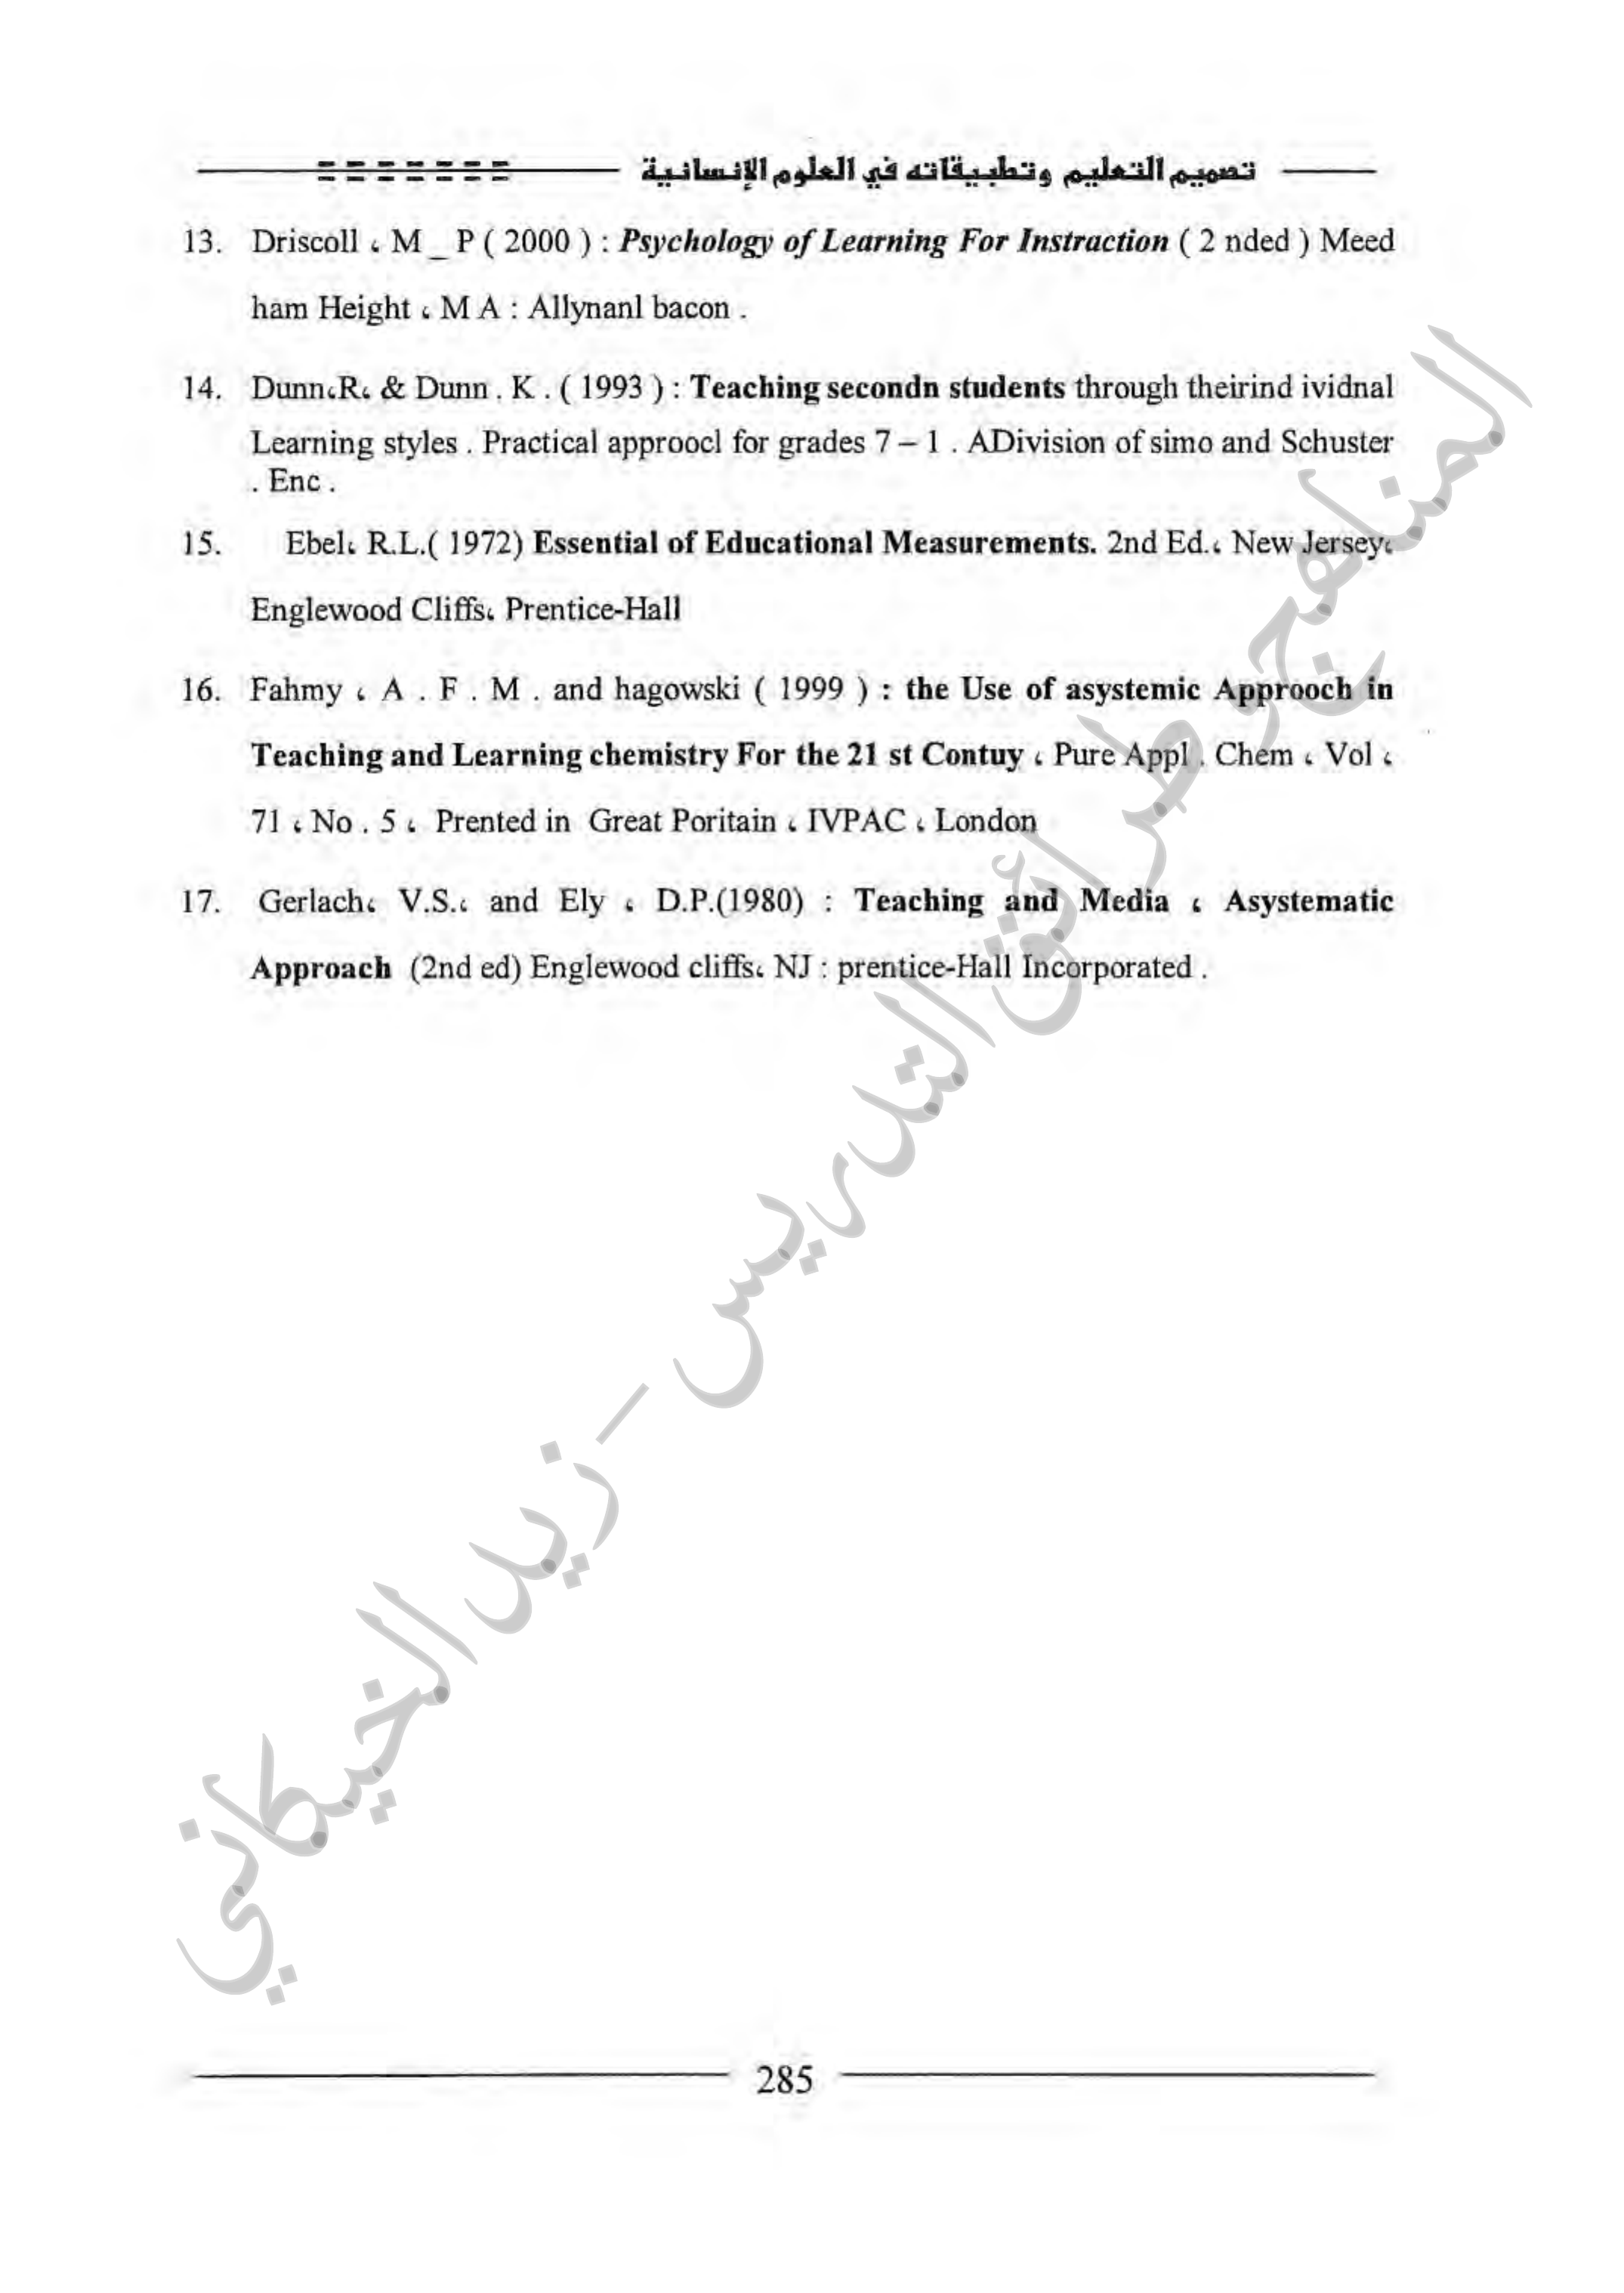 تصميم التعليم وتطبيقاته في العلوم الإنسانية
13. Driscoll ، M _ P ( 2000 ) : Psychology of Learning For Instraction ( 2 nded ) Meed
ham Height ، M A : Allynanl bacon .
14. Dunn،R، & Dunn . K . ( 1993 ) : Teaching secondn students through theirind ividnal
Learning styles . Practical approocl for grades 7 – 1 . ADivision of simo and Schuster
. Enc .
15. Ebel، R.L.( 1972) Essential of Educational Measurements. 2nd Ed.، New Jersey،
Englewood Cliffs، Prentice-Hall
16. Fahmy ، A . F . M . and hagowski ( 1999 ) : the Use of asystemic Approoch in
Teaching and Learning chemistry For the 21 st Contuy ، Pure Appl . Chem ، Vol ،
71 ، No . 5 ، Prented in Great Poritain ، IVPAC ، London
17. Gerlach، V.S.، and Ely ، D.P.(1980) : Teaching and Media ، Asystematic
Approach (2nd ed) Englewood cliffs، NJ : prentice-Hall Incorporated .
المناهج وطرائق التدريس - زيد الخيكاني
285